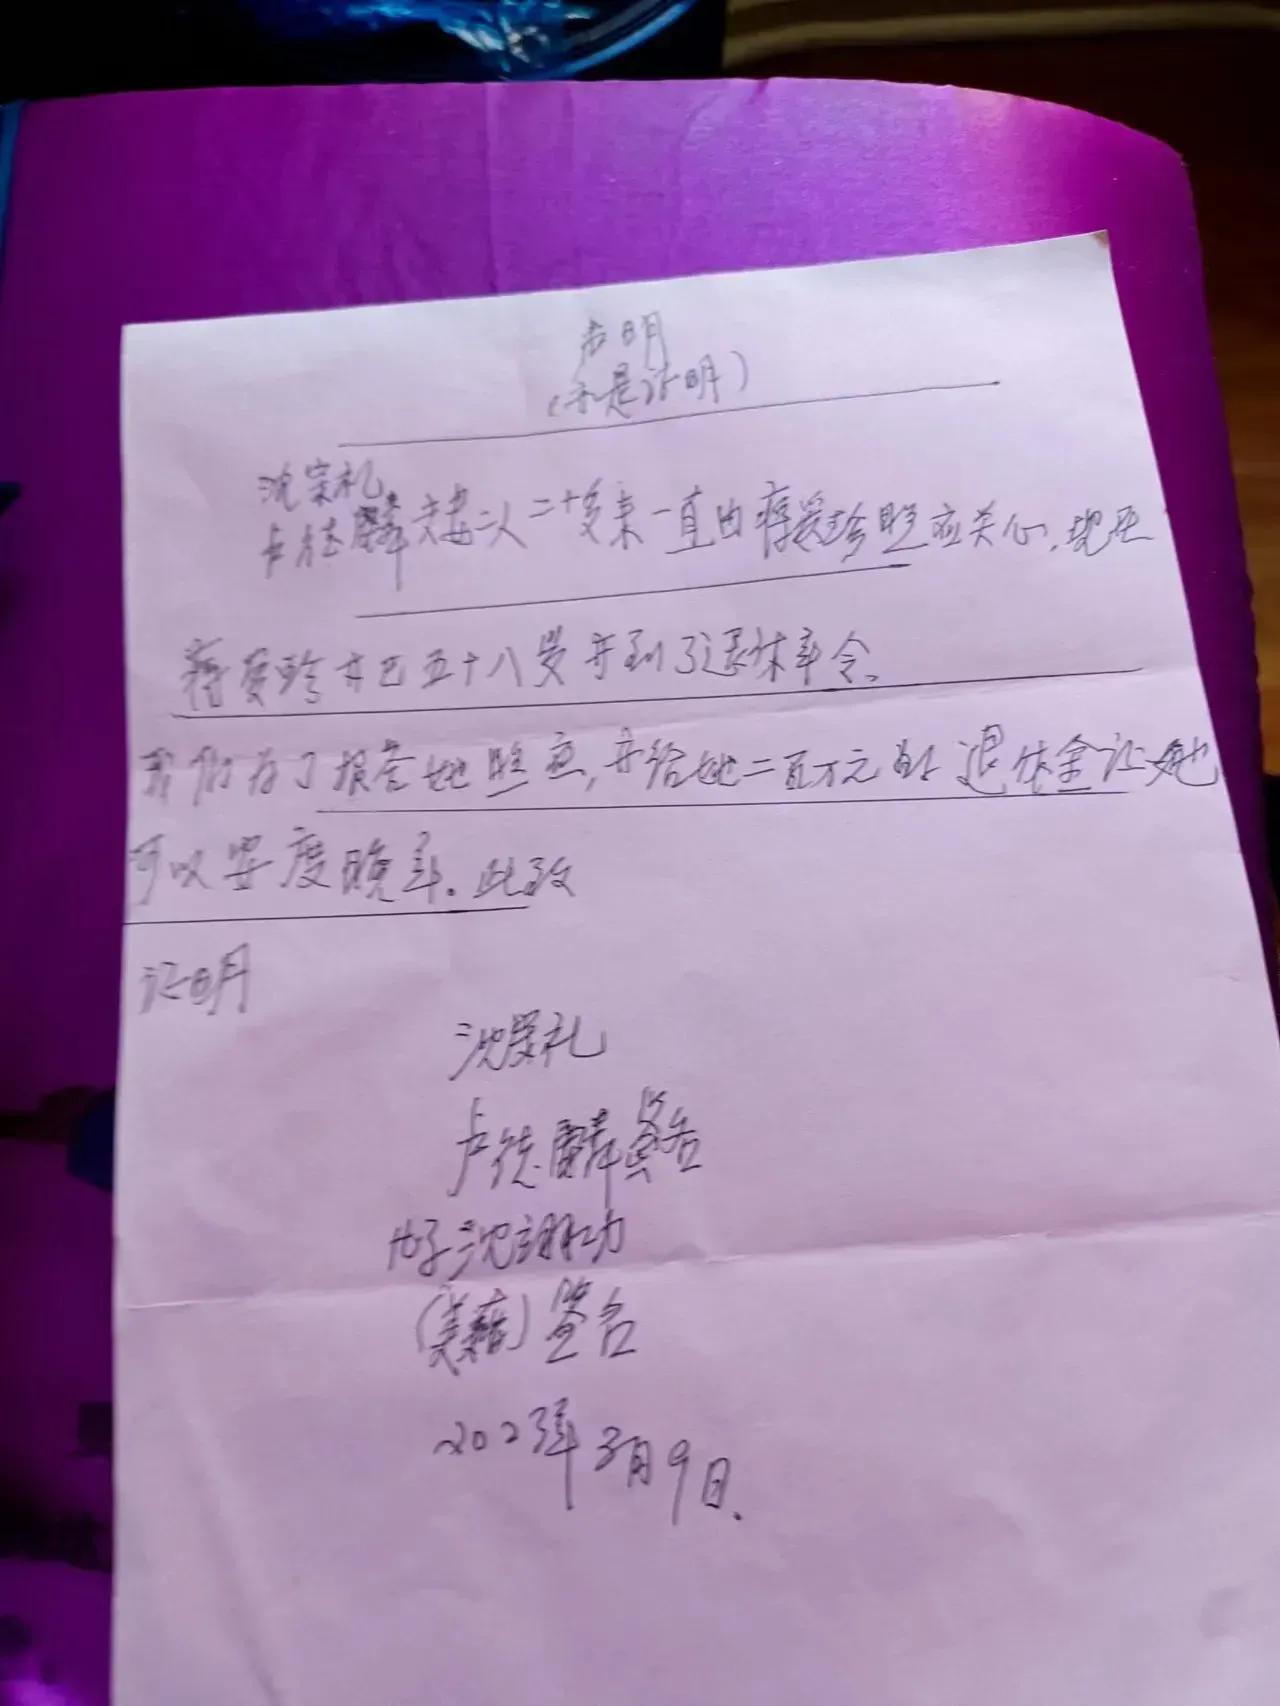 声明
(亦是证明)
沈宗礼
卢德麟夫妻二人二十多来一直由蒋爱珍照应关心,现在
蒋爱珍亦已五十八岁亦到了退休年令。
我们为了报答她照应,亦给她二百万元的退休金让她
可以安度晚年。此致
证明
沈宗礼
卢德麟签名
沈
(美籍)签名
2023年3月9日.